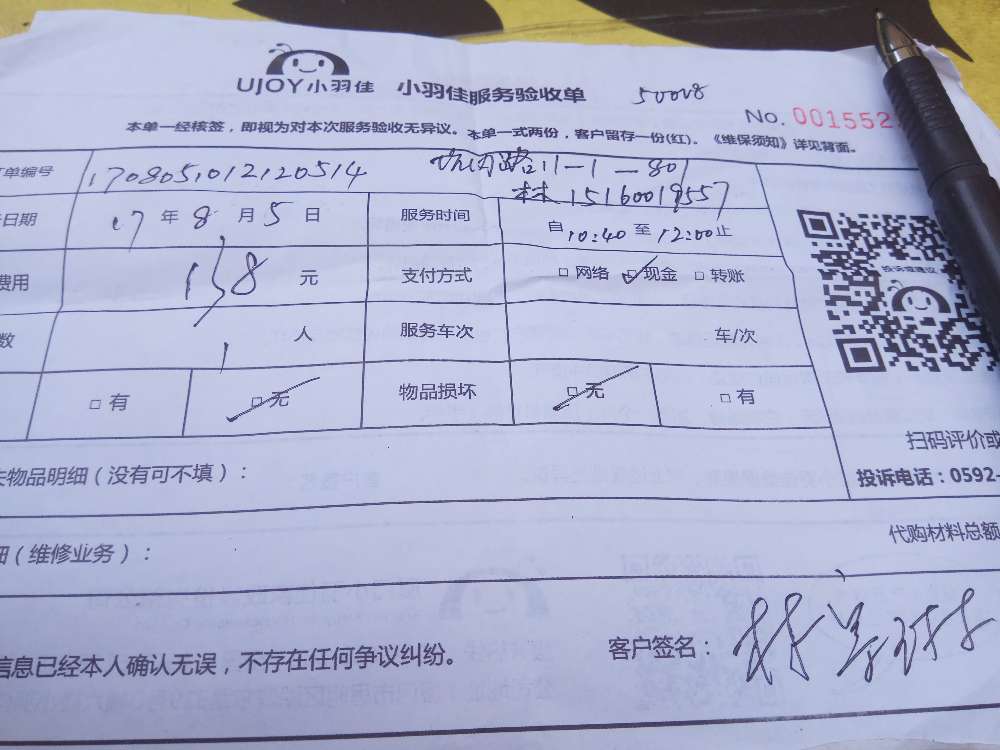 UJOY小羽佳 小羽佳服务验收单 50008
No. 001552
本单一经核签，即视为对本次服务验收无异议。本单一式两份，客户留存一份(红)。《维保须知》详见背面。
单编号 170805012120514 路11-1-801
林 15160019557
日期 17年8月5日 服务时间 自10:40至12:00止
费用 138元 支付方式 □网络 ☑现金 □转账
数 1人 服务车次 车/次
□有 ☑无 物品损坏 ☑无 □有
投诉或建议
扫码评价或
物品明细（没有可不填）：
投诉电话：0592-
细（维修业务）：
代购材料总额
信息已经本人确认无误，不存在任何争议纠纷。 客户签名：